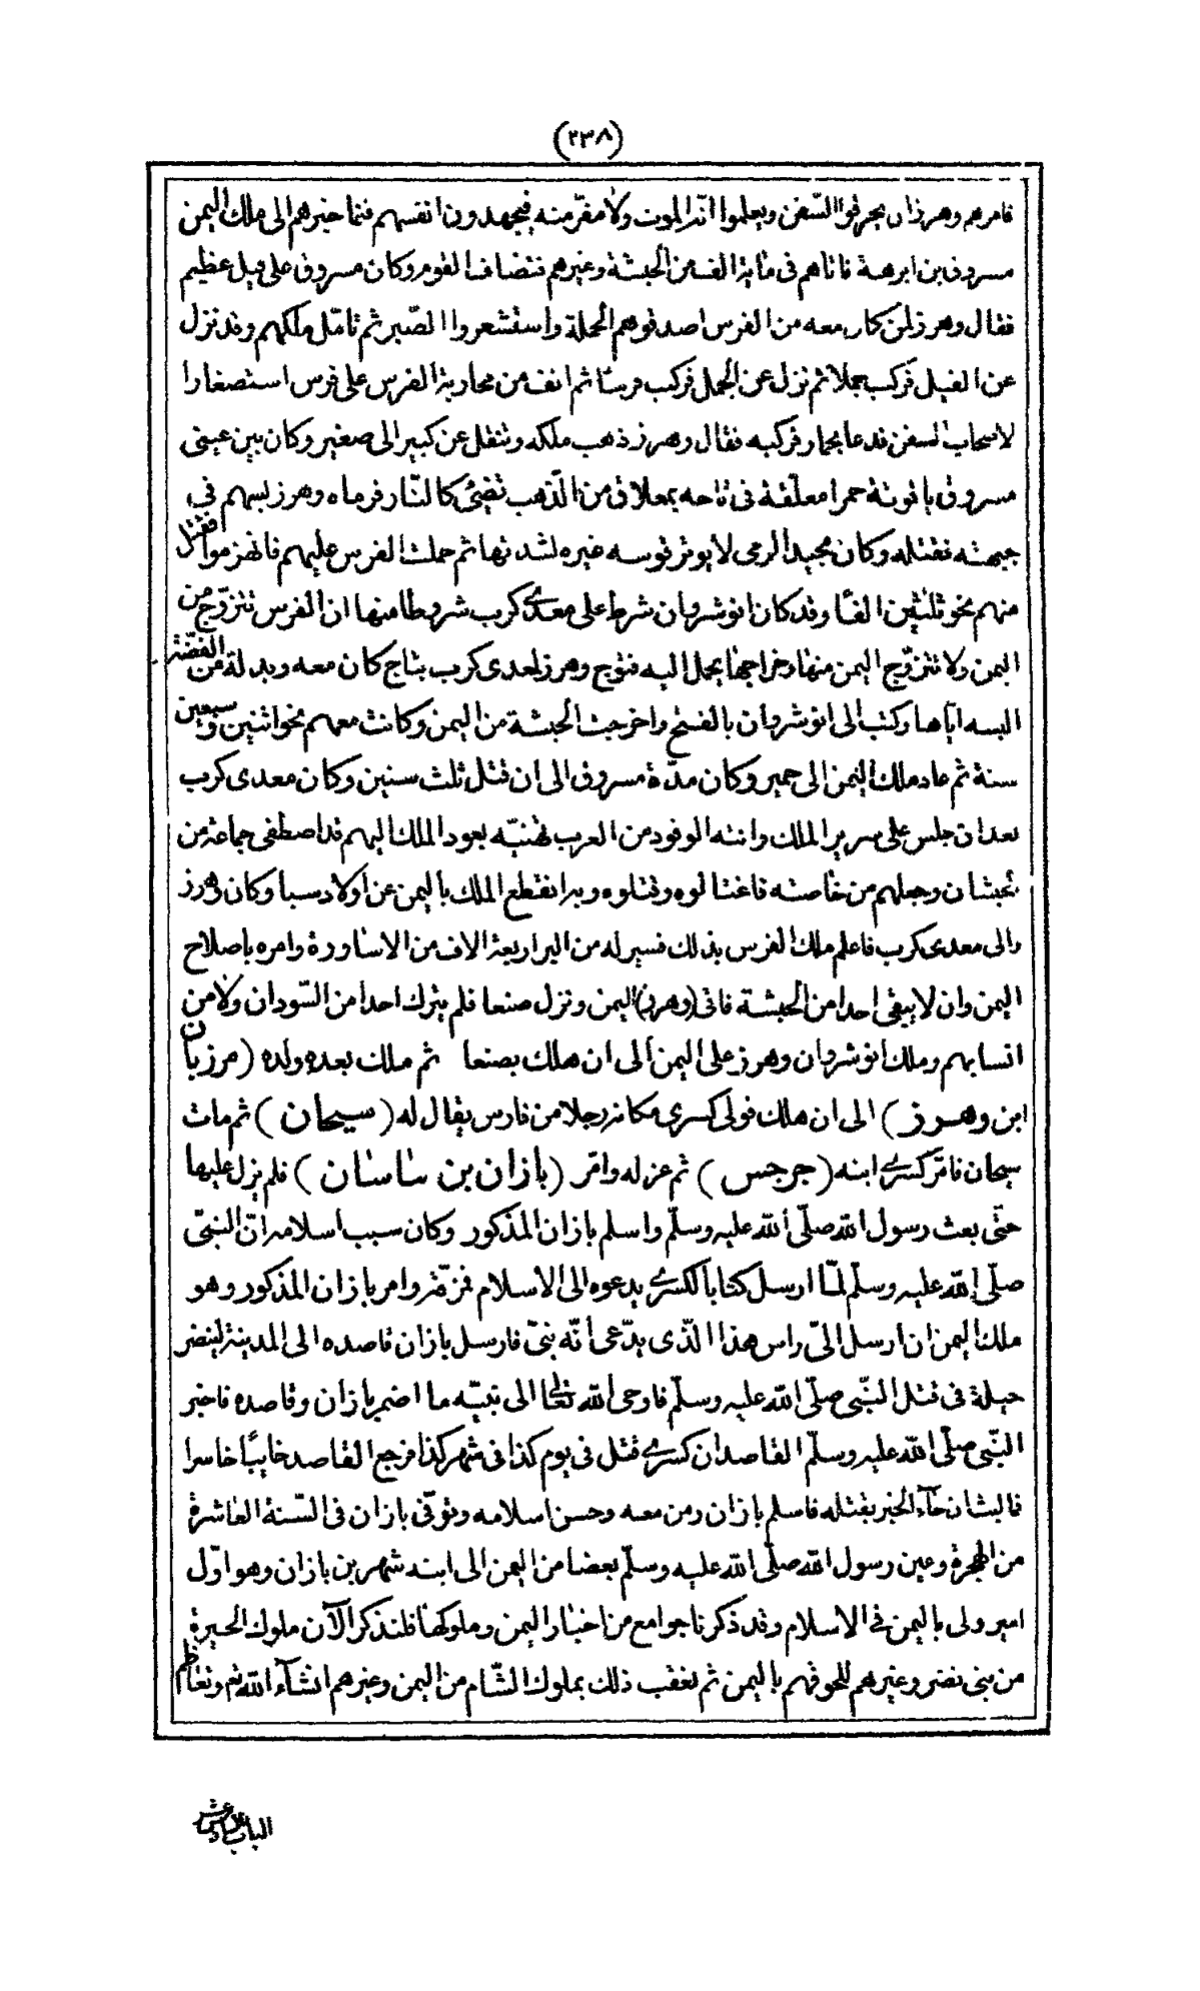 (٢٣٨)
فامرهم وهرز ان يحرقوا السّفن ويعلموا انّه الموت ولا مفرّ منه فيجهدون انفسهم فنما خبرهم الى ملك اليمن
مسروق بن ابرهة فاتاهم فى مائة الف من الحبشة وغيرهم فتضاف القوم وكان مسروق على فيل عظيم
فقال وهرز لمن كان معه من الفرس اصدقوهم الحملة واستشعروا الصّبر ثم تامّل ملكهم وقد نزل
عن الفيل فركب جملا ثم نزل عن الجمل فركب فرسا ثم انف من محاربة الفرس على فرس استصغارا
لاصحاب السفن فدعا بحمار فركبه فقال وهرز ذهب ملكه وتنقل عن كبير الى صغير وكان بين عينى
مسروق ياقوتة حمرا معلّقة فى تاجه بمعلاق من الذّهب تضئ كالنّار فرماه وهرز بسهم فى
جبهته فقتله وكان مجيد الرمى لا يوتر قوسه غيره لشدتها ثم حملت الفرس عليهم فانهزموا فقتل
منهم نحو ثلثين الفًا وقد كان انوشروان شرط على معدى كرب شروطا منها ان الفرس تتزوّج من
اليمن ولا تتزوّج اليمن منها وخراجها يحمل اليه فتوج وهرز لعدى كرب بتاج كان معه وبدلة من الفضّة
البسه ايّاها وكتب الى انوشروان بالفتح واخرجت الحبشة من اليمن وكانت معهم نحو اثنين وسبعين
سنة ثم عاد ملك اليمن الى حمير وكان مدّة مسروق الى ان قتل ثلث سنين وكان معدى كرب
بعد ان جلس على سرير الملك واتته الوفود من العرب تهنيّه بعود الملك اليهم قد اصطفى جماعة من
الحبشان وجعلهم من خاصته فاغتالوه وقتلوه وبه انقطع الملك باليمن عن اولاد سبا وكان وهرز
والى معدى كرب فاعلم ملك الفرس بذلك فسير له من البر اربعة الاف من الاساورة وامره باصلاح
اليمن وان لا يبقى احدا من الحبشة فاتى (وهرز) اليمن ونزل صنعا فلم يترك احدا من السّودان ولا من
انسابهم وملك انوشروان وهرز على اليمن الى ان هلك بصنعا ثم ملك بعده ولده (مرزبان
ابن وهرز) الى ان هلك فولى كسرى مكانه رجلا من فارس يقال له (سيحان) ثم مات
سيحان فامّر كسرى ابنه (جرجس) ثم عزله وامّر (بازان بن ساسان) فلم يزل عليها
حتّى بعث رسول اللّه صلّى اللّه عليه وسلّم واسلم بازان المذكور وكان سبب اسلامه انّ النبىّ
صلّى اللّه عليه وسلّم لمّا ارسل كتابا لكسرى يدعوه الى الاسلام فمزّقه وامر بازان المذكور وهو
ملك اليمن ان ارسل الىّ راس هذا الّذى يدّعى انّه نبىّ فارسل بازان قاصده الى المدينة لينضر
حيلة فى قتل النّبى صلّى اللّه عليه وسلّم فاوحى اللّه تعالى الى نبيّه ما اضمر بازان وقاصده فاخبر
النّبى صلّى اللّه عليه وسلّم القاصد ان كسرى قتل فى يوم كذا فى شهر كذا فرجع القاصد خايبًا خاسرا
فما لبث ان جآء الخبر بقتله فاسلم بازان ومن معه وحسن اسلامه وتوفّى بازان فى السّنة العاشرة
من الهجرة وعين رسول اللّه صلّى اللّه عليه وسلّم بعضا من اليمن الى ابنه شهر بن بازان وهو اوّل
امير ولى باليمن فى الاسلام وقد ذكرنا جوامع من اخبار اليمن وملوكها فلنذكر الآن ملوك الحيرة
من بنى نضر وغيرهم للحوقهم باليمن ثم نعقب ذلك بملوك الشّام من اليمن وغيرهم انشآء اللّه تم
الباب السادس عشر